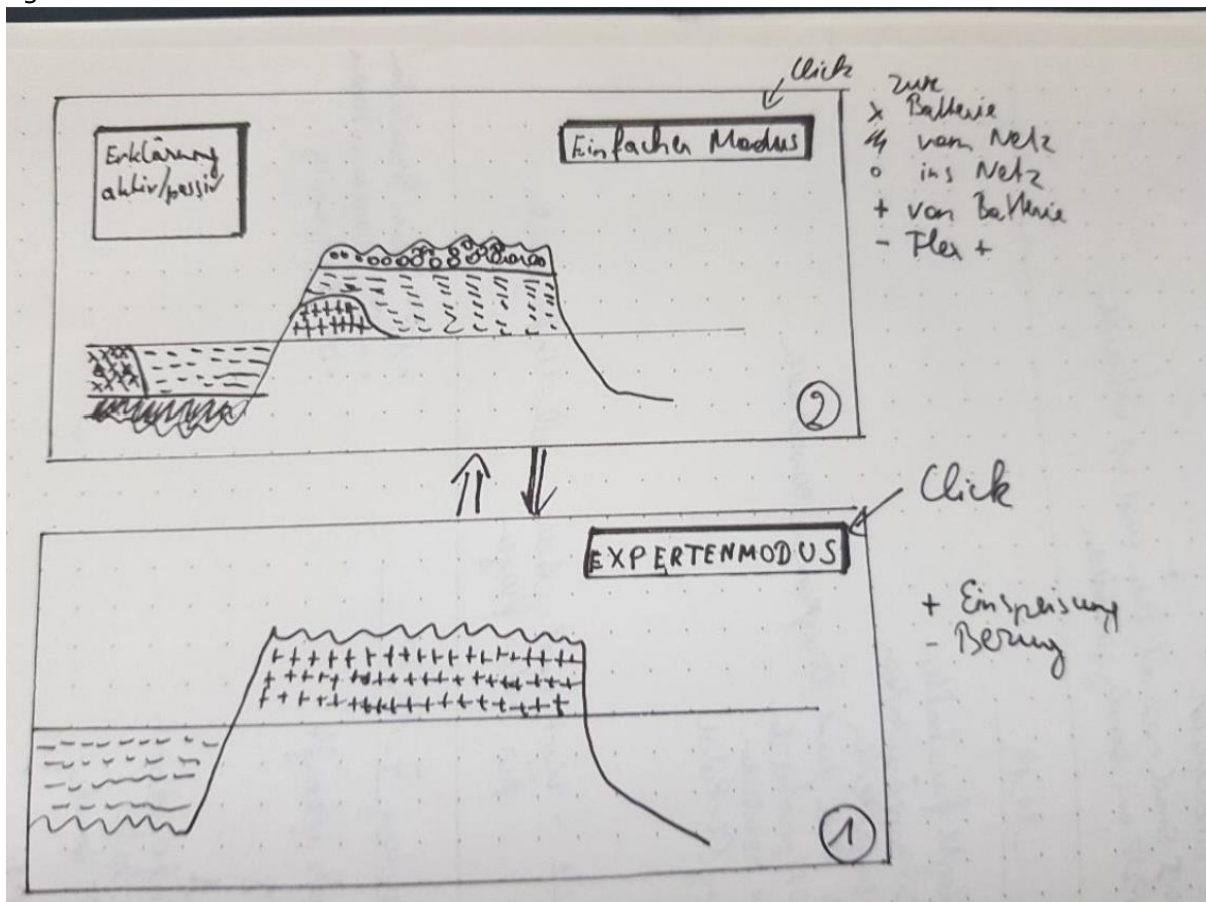 Click
Erklärung
aktiv/passiv
Einfacher Modus
zur
x Batterie
vom Netz
o ins Netz
+ von Batterie
- Flex +
2
Click
EXPERTENMODUS
+ Einspeisung
- Bezug
1